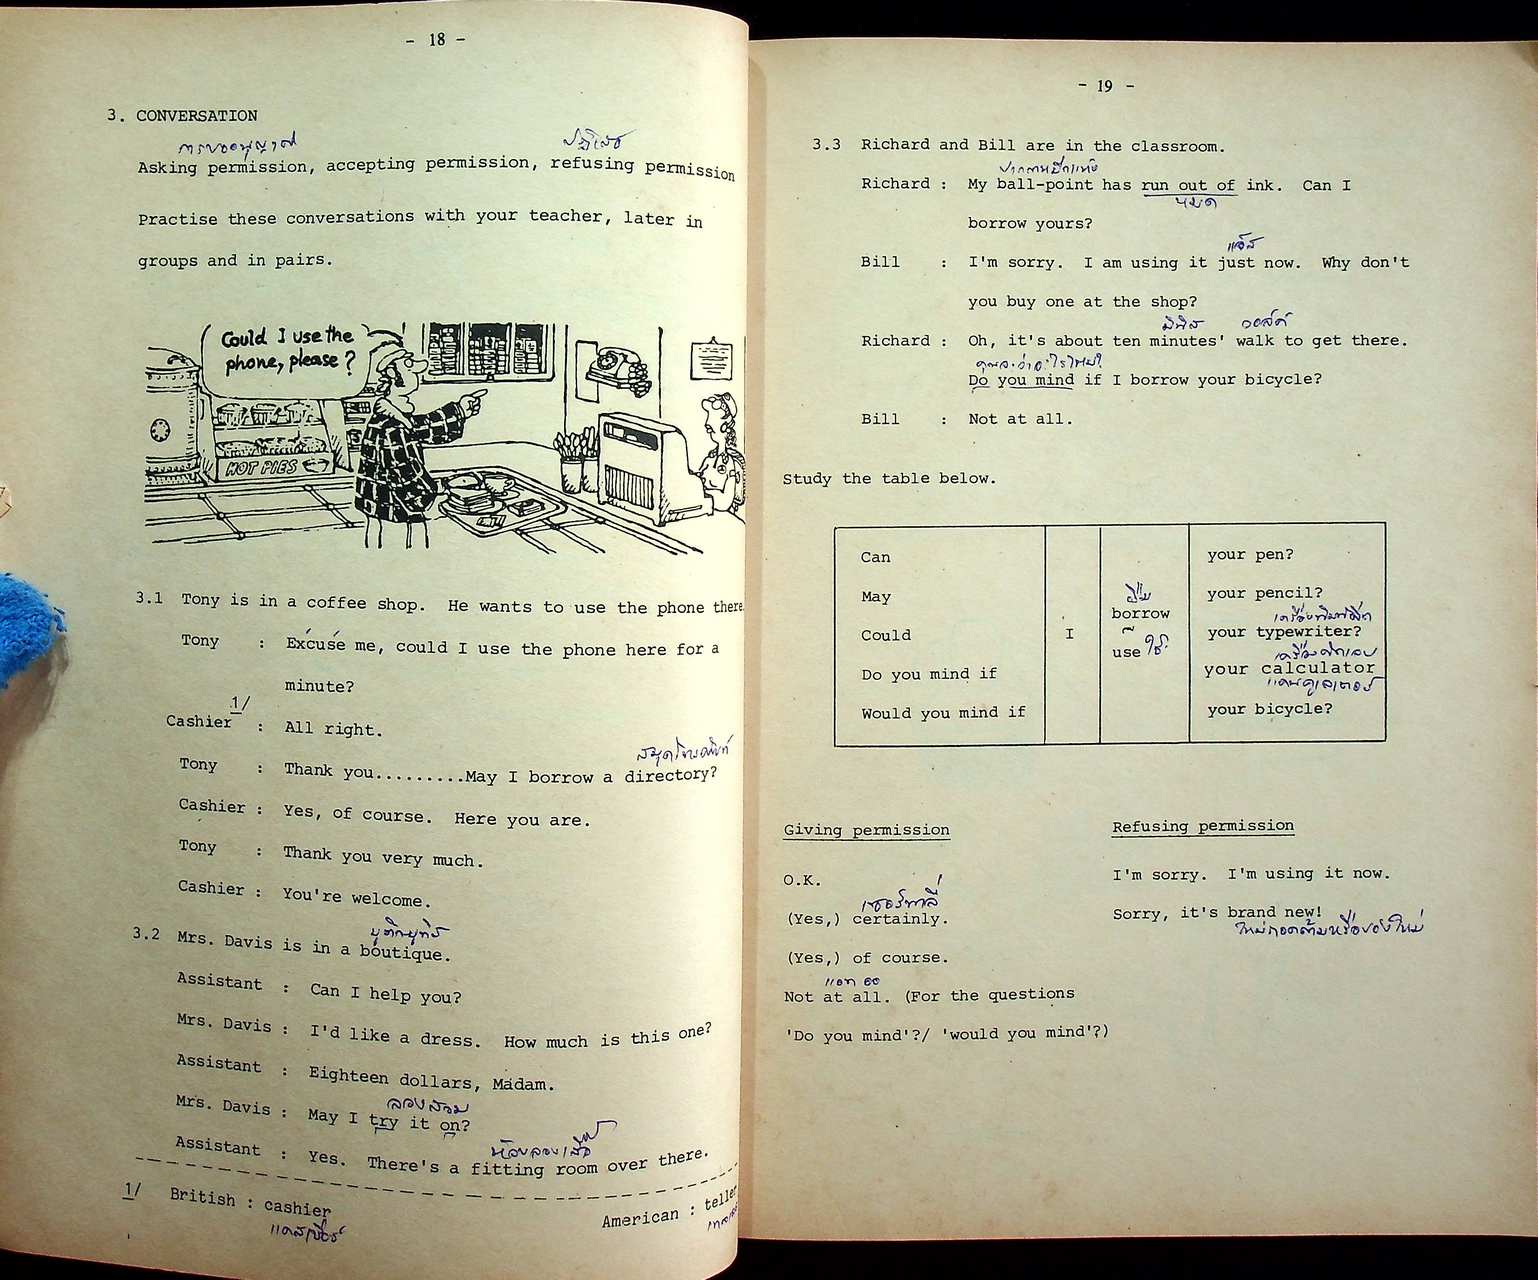 - 18 -
3. CONVERSATION
การขออนุญาต ปฏิเสธ
Asking permission, accepting permission, refusing permission
Practise these conversations with your teacher, later in
groups and in pairs.
Could I use the
phone, please?
HOT PIES
3.1 Tony is in a coffee shop. He wants to use the phone there
Tony : Excuse me, could I use the phone here for a
minute?
Cashier 1/ : All right.
สมุดโทรศัพท์
Tony : Thank you.........May I borrow a directory?
Cashier : Yes, of course. Here you are.
Tony : Thank you very much.
Cashier : You're welcome.
3.2 Mrs. Davis is in a boutique.
Assistant : Can I help you?
Mrs. Davis : I'd like a dress. How much is this one?
Assistant : Eighteen dollars, Madam.
ลองสวม
Mrs. Davis : May I try it on?
ห้องลองเสื้อ
Assistant : Yes. There's a fitting room over there.
1/ British : cashier American : teller
แคสเชียร์
- 19 -
3.3 Richard and Bill are in the classroom.
Richard : My ball-point has run out of ink. Can I
หมด
borrow yours?
Bill : I'm sorry. I am using it just now. Why don't
you buy one at the shop?
มินิส วอล์ค
Richard : Oh, it's about ten minutes' walk to get there.
คุณจะว่าอะไรไหม?
Do you mind if I borrow your bicycle?
Bill : Not at all.
Study the table below.
Can your pen?
May ยืม your pencil?
borrow เครื่องพิมพ์ดีด
Could I your typewriter?
use ใช้ เครื่องคิดเลข
Do you mind if your calculator
แคลคูเลเตอร์
Would you mind if your bicycle?
Giving permission Refusing permission
O.K. I'm sorry. I'm using it now.
(Yes,) certainly. Sorry, it's brand new!
(Yes,) of course.
แอท ออ
Not at all. (For the questions
'Do you mind'?/ 'would you mind'?)